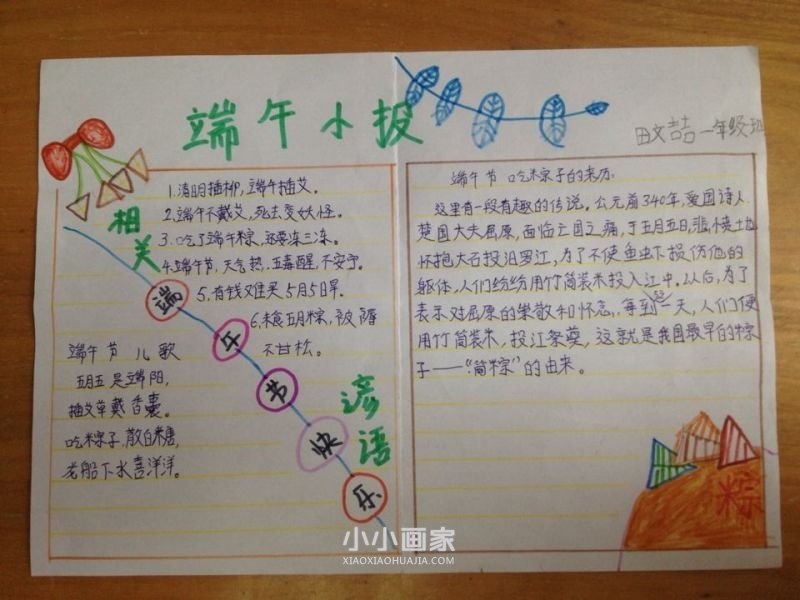 端午小报
田文喆 一年级 班
相关
谚语
1.清明插柳,端午插艾。
2.端午不戴艾,死去变妖怪。
3.吃了端午粽,还要冻三冻。
4.端午节,天气热,五毒醒,不安宁。
5.有钱难买5月5日旱。
6.未食五月粽,被褥
不甘松。
端午节快乐
端午节儿歌
五月五是端阳,
插艾草戴香囊。
吃粽子,散白糖,
龙船下水喜洋洋。
端午节吃粽子的来历
这里有一段有趣的传说,公元前340年,爱国诗人、
楚国大夫屈原,面临亡国之痛,于五月五日,悲愤
怀抱大石投汨罗江,为了不使鱼虫下损伤他的
躯体,人们纷纷用竹筒装米投入江中。从后,为了
表示对屈原的崇敬和怀念,每到这一天,人们便
用竹筒装米,投江祭奠,这就是我国最早的粽
子——“筒粽”的由来。
粽
小小画家
XIAOXIAOHUAJIA.COM